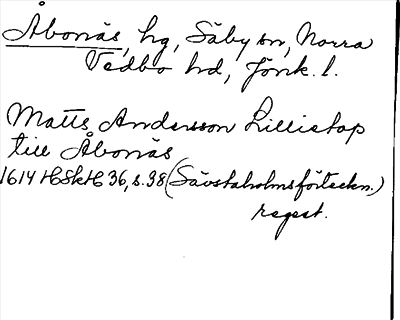 Åbonäs, hg, Säby sn, Norra
Vedbo hd, Jönk. l.
Matts Andersson Lilliehöp
till Åbonäs
1614 HSkH 36, s. 38 (Sävstaholmsförteckn.)
regest.